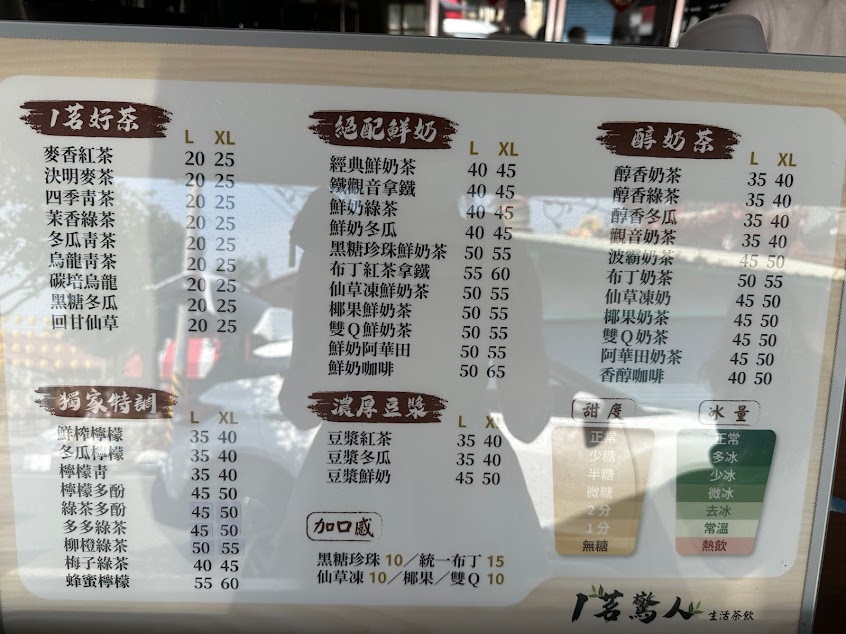 1茗好茶
L XL
麥香紅茶 20 25
決明麥茶 20 25
四季青茶 20 25
茉香綠茶 20 25
冬瓜青茶 20 25
烏龍青茶 20 25
碳培烏龍 20 25
黑糖冬瓜 20 25
回甘仙草 20 25
獨家特調
L XL
鮮榨檸檬 35 40
冬瓜檸檬 35 40
檸檬青 35 40
檸檬多酚 45 50
綠茶多酚 45 50
多多綠茶 45 50
柳橙綠茶 50 55
梅子綠茶 40 45
蜂蜜檸檬 55 60
絕配鮮奶
L XL
經典鮮奶茶 40 45
鐵觀音拿鐵 40 45
鮮奶綠茶 40 45
鮮奶冬瓜 40 45
黑糖珍珠鮮奶茶 50 55
布丁紅茶拿鐵 55 60
仙草凍鮮奶茶 50 55
椰果鮮奶茶 50 55
雙Q鮮奶茶 50 55
鮮奶阿華田 50 55
鮮奶咖啡 50 65
濃厚豆漿
L XL
豆漿紅茶 35 40
豆漿冬瓜 35 40
豆漿鮮奶 45 50
加口感
黑糖珍珠 10／統一布丁 15
仙草凍 10／椰果／雙Q 10
醇奶茶
L XL
醇香奶茶 35 40
醇香綠茶 35 40
醇香冬瓜 35 40
觀音奶茶 35 40
波霸奶茶 45 50
布丁奶茶 50 55
仙草凍奶 45 50
椰果奶茶 45 50
雙Q奶茶 45 50
阿華田奶茶 45 50
香醇咖啡 40 50
甜度
正常
少糖
半糖
微糖
2分
1分
無糖
冰量
正常
多冰
少冰
微冰
去冰
常溫
熱飲
1茗驚人 生活茶飲